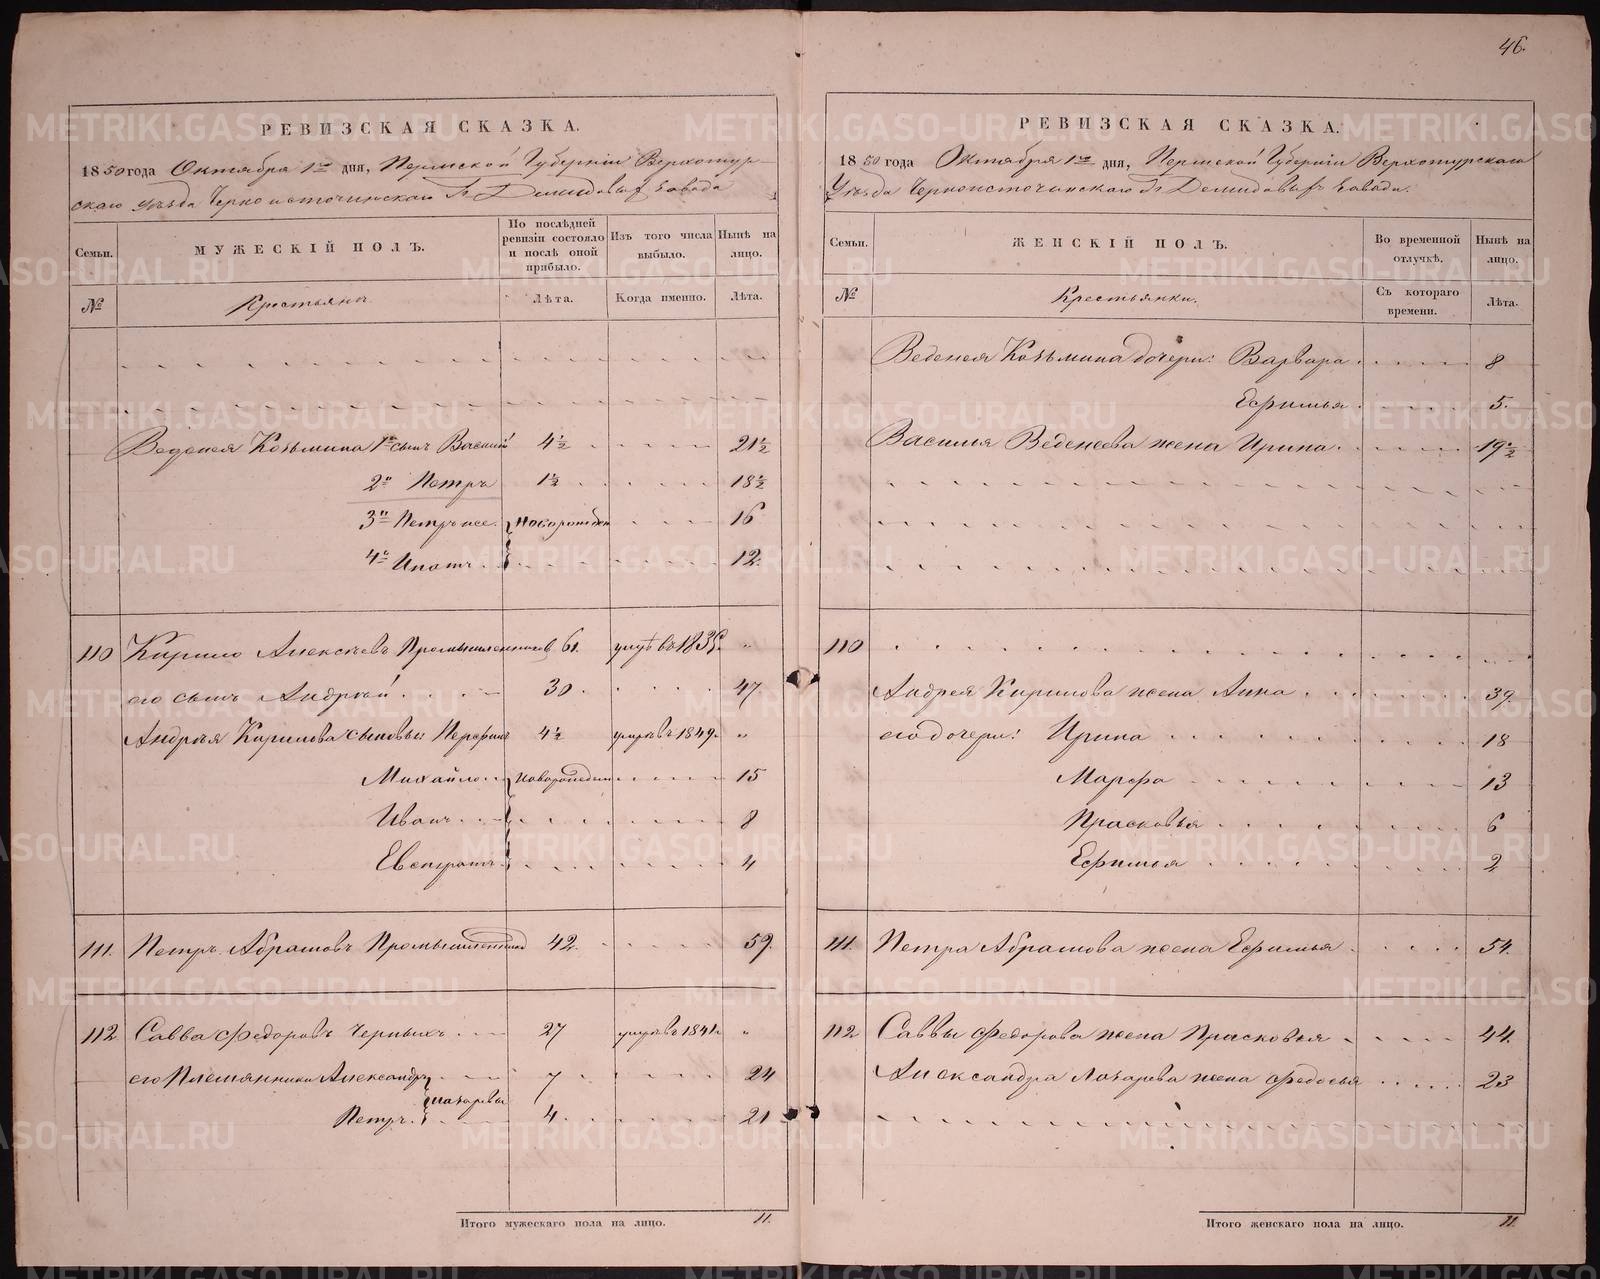 46.
РЕВИЗСКАЯ СКАЗКА.
1850 года Октября 1го дня, Пермской Губерніи Верхотур-
скаго Уѣзда Черноисточинскаго Гг Демидовыхъ завода
Семьи. МУЖЕСКІЙ ПОЛЪ. По послѣдней ревизіи состояло и послѣ оной прибыло. Изъ того числа выбыло. Нынѣ на лицо.
№ Крестьяне. Лѣта. Когда именно. Лѣта.
Веденея Козьмина 1й сынъ Василій 4½ 21½
2й Петръ 1½ 18½
3й Петръ же новорожден 16
4й Ипатъ 12.
110 Кирило Алексѣевъ Промышленниковъ 61. умръ въ 1835. "
его сынъ Андрей 30. 47.
Андрѣя Кирилова сыновья: Перфилъ 4½ умръ въ 1849. "
Михайло новорожден 15
Иванъ 8
Евстратъ 4
111. Петръ Абрамовъ Промышленниковъ 42. 59.
112 Савва Федоровъ Черныхъ 27 умръ въ 1841. "
его Племянники Александръ 7 24
Лазаревы
Петръ 4. 21
Итого мужескаго пола на лицо. 11.
РЕВИЗСКАЯ СКАЗКА.
1850 года Октября 1го дня, Пермской Губерніи Верхотурскаго
Уѣзда Черноисточинскаго Гг Демидовыхъ завода.
Семьи. ЖЕНСКІЙ ПОЛЪ. Во временной отлучкѣ. Нынѣ на лицо.
№ Крестьянки. Съ котораго времени. Лѣта.
Веденея Козьмина дочери: Варвара 8
Ефимья 5.
Василья Веденеева жена Ирина 19½
110
Андрея Кирилова жена Анна 39.
его дочери: Ирина 18
Марфа 13
Прасковья 6
Ефимья 2
111. Петра Абрамова жена Ефимья 54.
112 Саввы Федорова жена Прасковья 44.
Александра Лазарева жена Федосья 23
Итого женскаго пола на лицо. 11.
METRIKI.GASO-URAL.RU